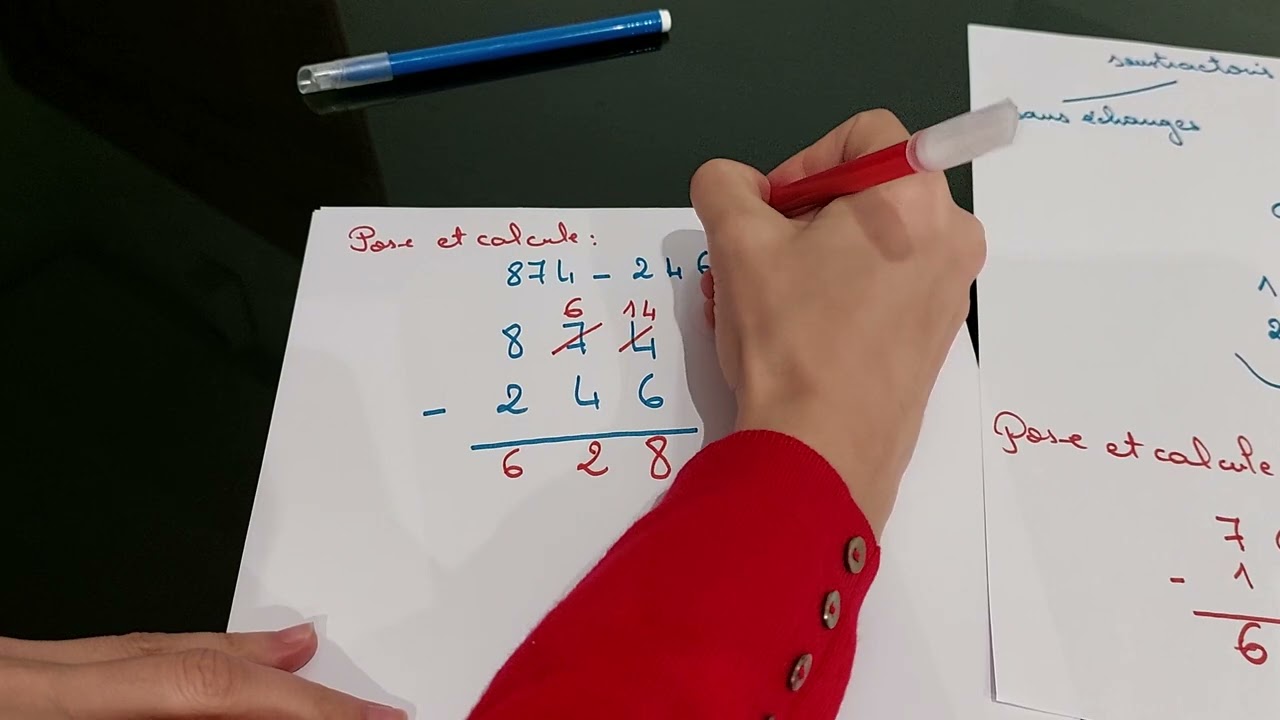 Pose et calcule :
874 - 246
6 14
8 7 4
- 2 4 6
6 2 8
soustractions
sans échanges
1
2
Pose et calcule
7
- 1
6